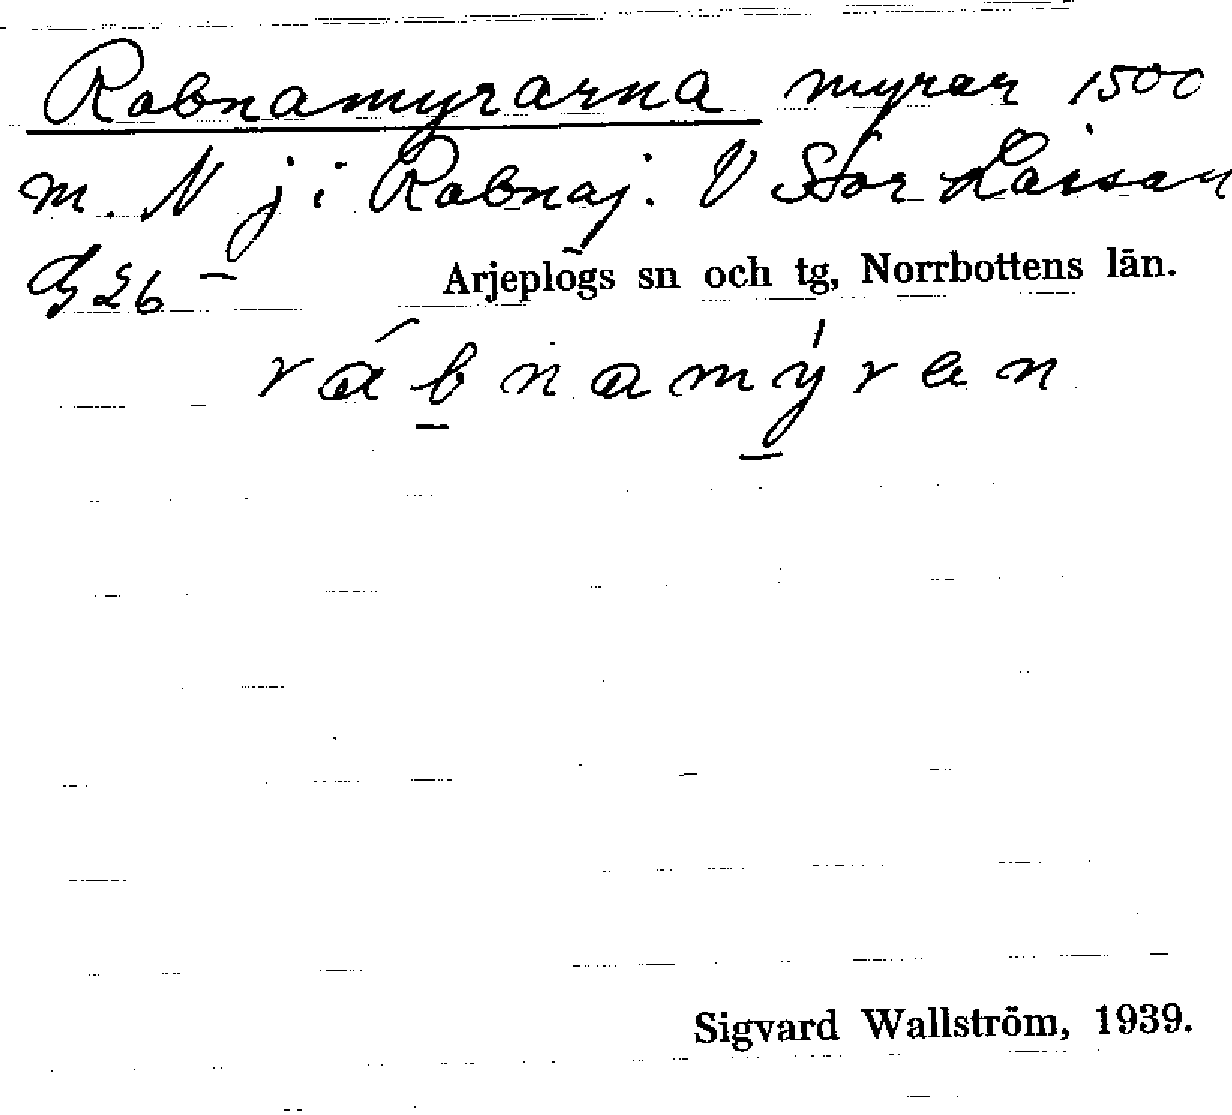 Rabnamyrarna myrar 1500
m. N j i Rabnaj. V Stor Laisan
G 26 – Arjeplogs sn och tg, Norrbottens län.
rábnamýran
Sigvard Wallström, 1939.